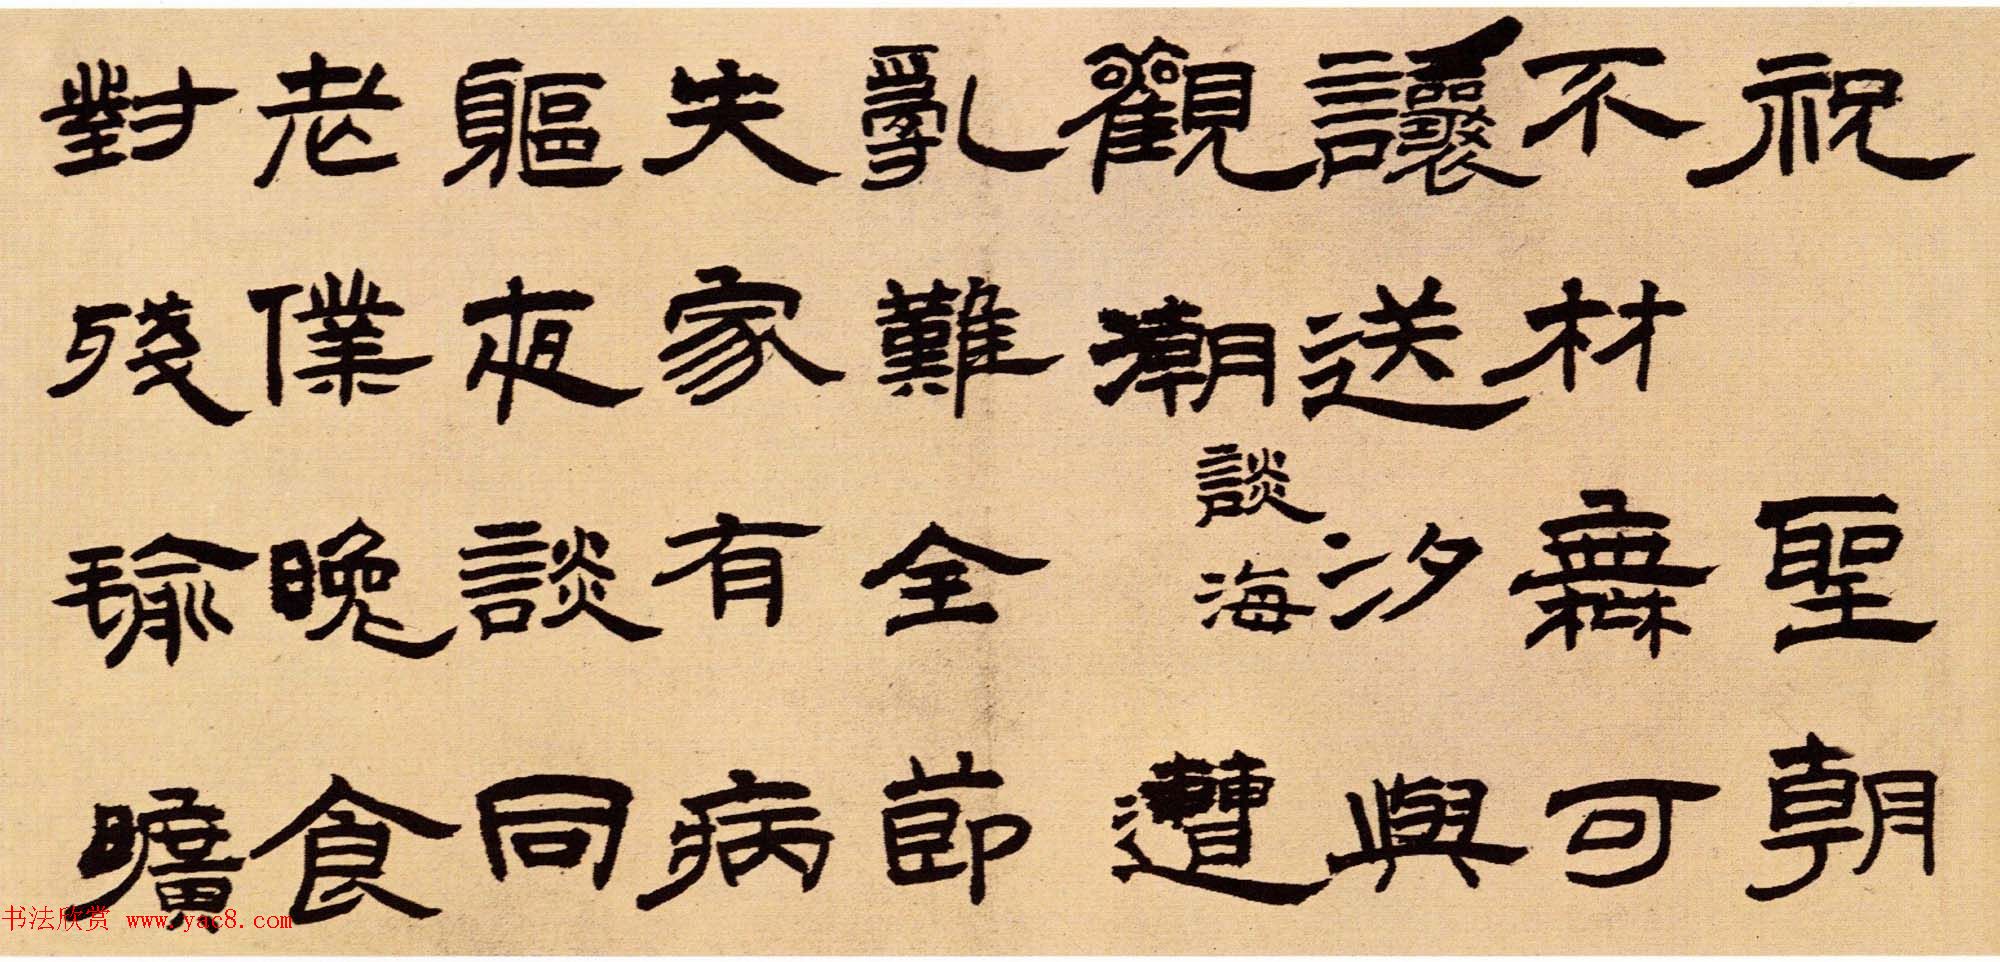 祝聖朝
不材無可
讓送汐與
觀潮談海遭
亂難全節
失家有病
軀夜談同
老僕晚食
對殘瑜曠
书法欣赏 www.yac8.com